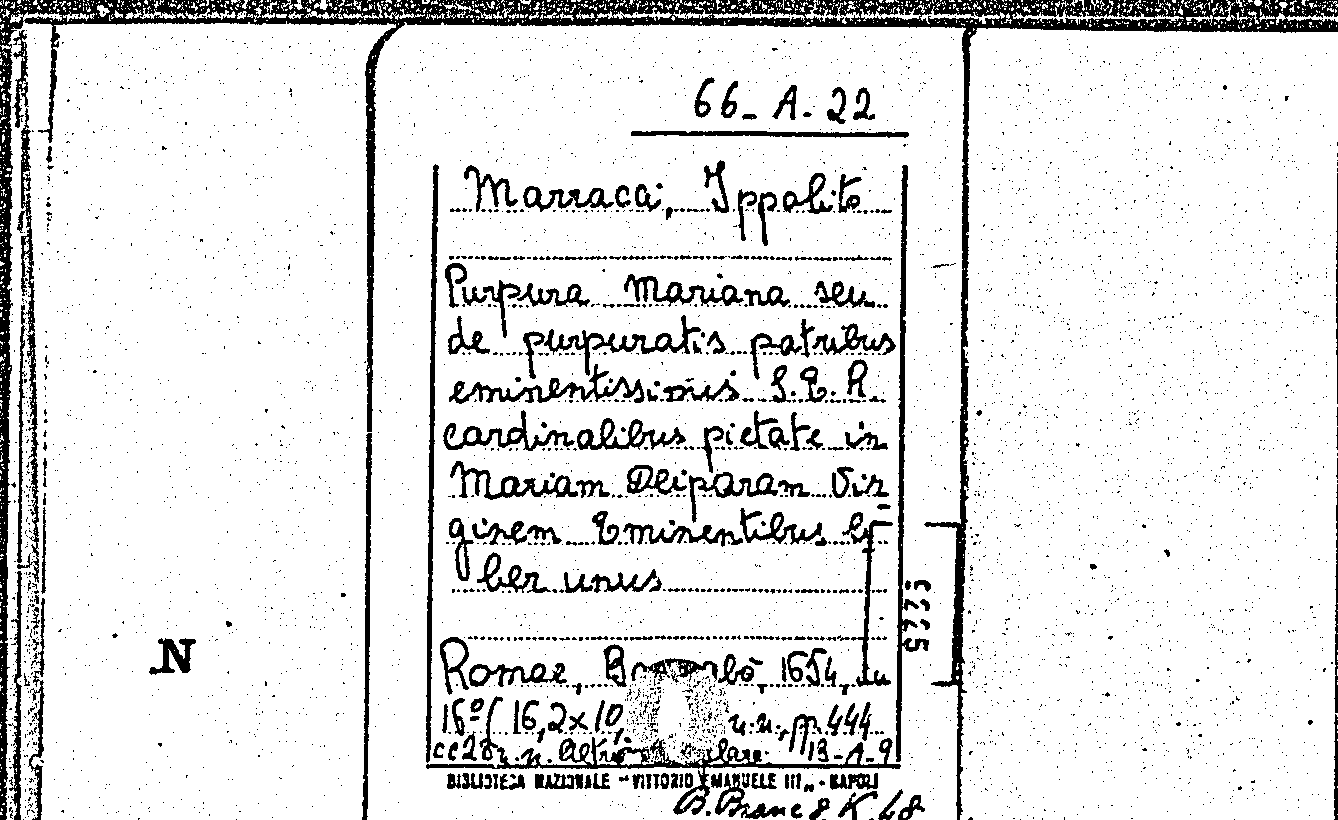 66_ A. 22
Marracci, Ippolito
Purpura Mariana seu
de purpuratis patribus
eminentissimis S. E. R.
cardinalibus pietate in
Mariam Deiparam Vir
ginem Eminentibus li
ber unus
N
Romae, 1654, in
16º (16,2x10, n.n., pp. 444
cc 28 n.n. 13-A-9
BIBLIOTECA NAZIONALE "VITTORIO EMANUELE III" - NAPOLI
B. Branc 8 K. 48